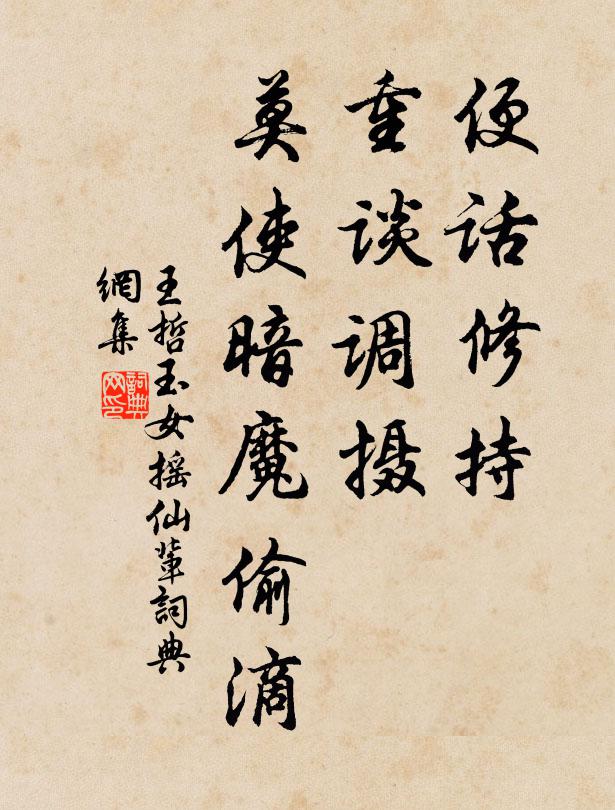 便话修持
重谈调摄
莫使暗魔偷滴
王哲玉女摇仙辈詞典
網集
詞典
网印